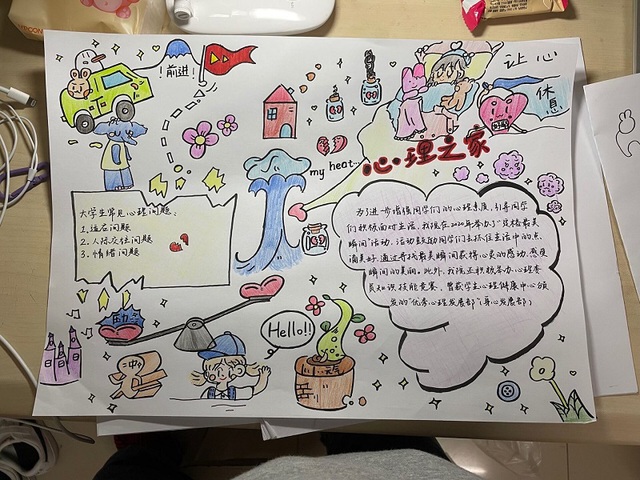 ！前进！
让心
休息
my heat...
心理之家
大学生常见心理问题：
1.适应问题
2.人际交往问题
3.情绪问题
为了进一步增强同学们的心理素质，引导同学
们积极面对生活，我院在2020年举办了“寻找最美
瞬间”活动。活动鼓励同学们去抓住生活中的点
滴美好，通过寻找最美瞬间表将心灵的感动，感受
瞬间的美丽。此外，我院还积极举办心理委
员知识技能竞赛，曾获学生心理健康中心颁
发的“优秀心理发展部”（身心发展部）
Hello!!